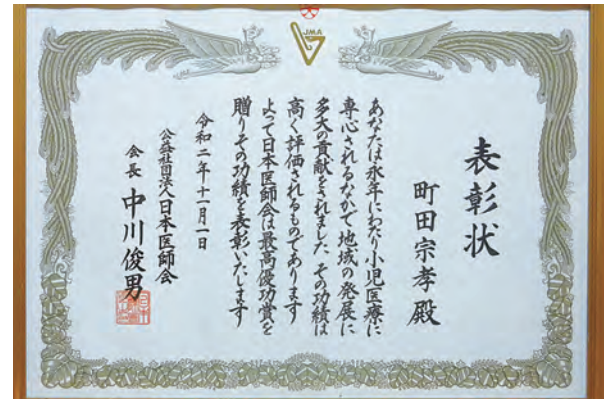 JMA
表彰状
町田宗孝殿
あなたは永年にわたり小児医療に
専心されるなかで地域の発展に
多大の貢献をされました その功績は
高く評価されるものであります
よって日本医師会は最高優功賞を
贈りその功績を表彰いたします
令和二年十一月一日
公益社団法人日本医師会
会長 中川俊男